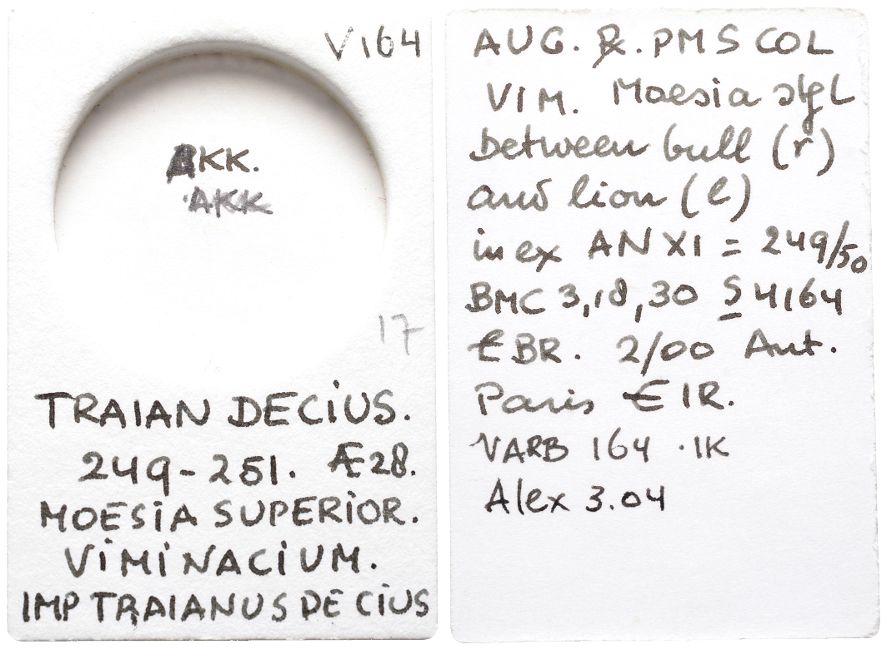 V164
AKK.
AKK
17
TRAIAN DECIUS.
249-251. Æ28.
MOESIA SUPERIOR.
VIMINACIUM.
IMP TRAIANUS DECIUS
AUG. R. PMS COL
VIM. Moesia stg L
between bull (r)
and lion (l)
in ex AN XI = 249/50
BMC 3,18,30 S 4164
€BR. 2/00 Ant.
Paris € IR.
VARB 164 . IK
Alex 3.04